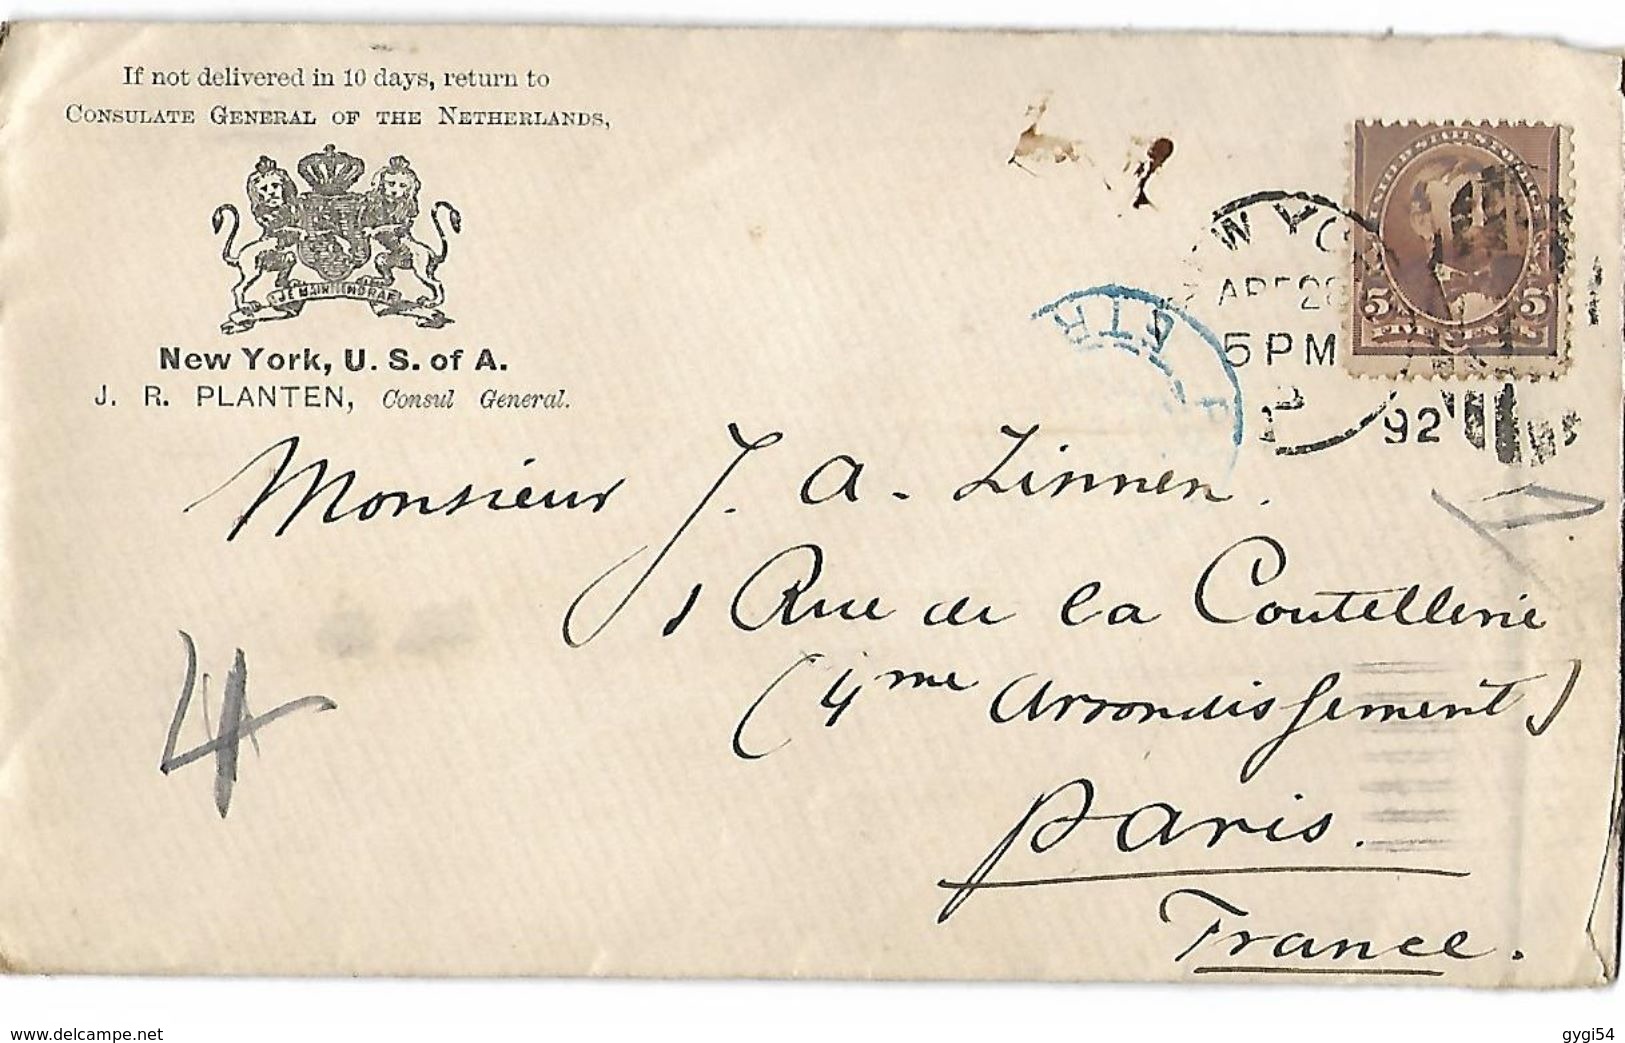 If not delivered in 10 days, return to
CONSULATE GENERAL OF THE NETHERLANDS,
JE MAINTIENDRAI
New York, U. S. of A.
J. R. PLANTEN, Consul General.
5 PM
92
5 5
Monsieur J. A. Zinnen.
1 Rue de la Coutellerie
(4me Arrondissement)
Paris.
France.
4
www.delcampe.net
gygi54